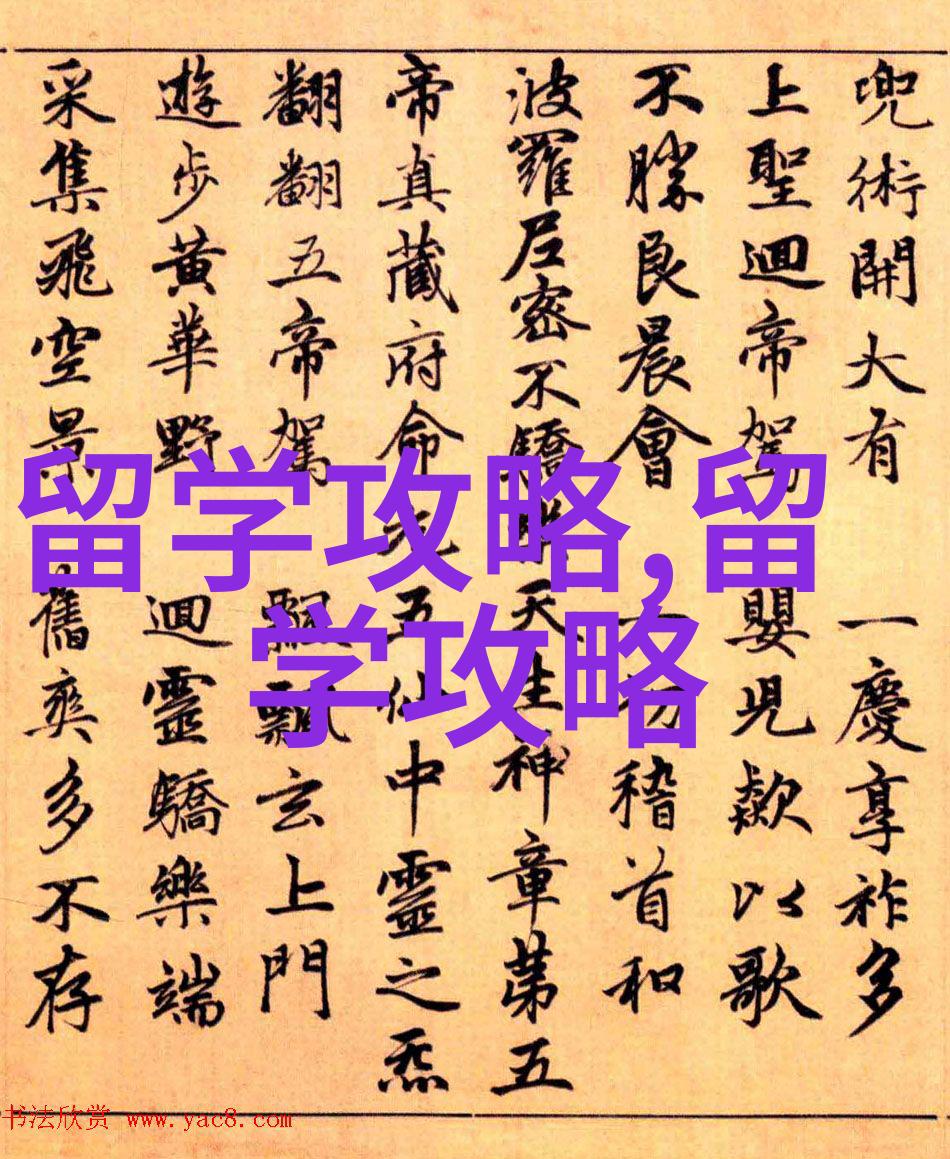 兜術開大有 一慶享祚多
上聖迴帝駕 嬰兒歎以歌
不勝良晨會 一切稽首和
波羅尼密不驕樂天生神章第五
帝真藏府命元五仙中靈之炁
翻翻五帝駕 飄飄玄上門
遊步黃華野 迴靈驕樂端
采集飛空景 舊爽多不存
留学攻略,留
学攻略
书法欣赏 www.yac8.com